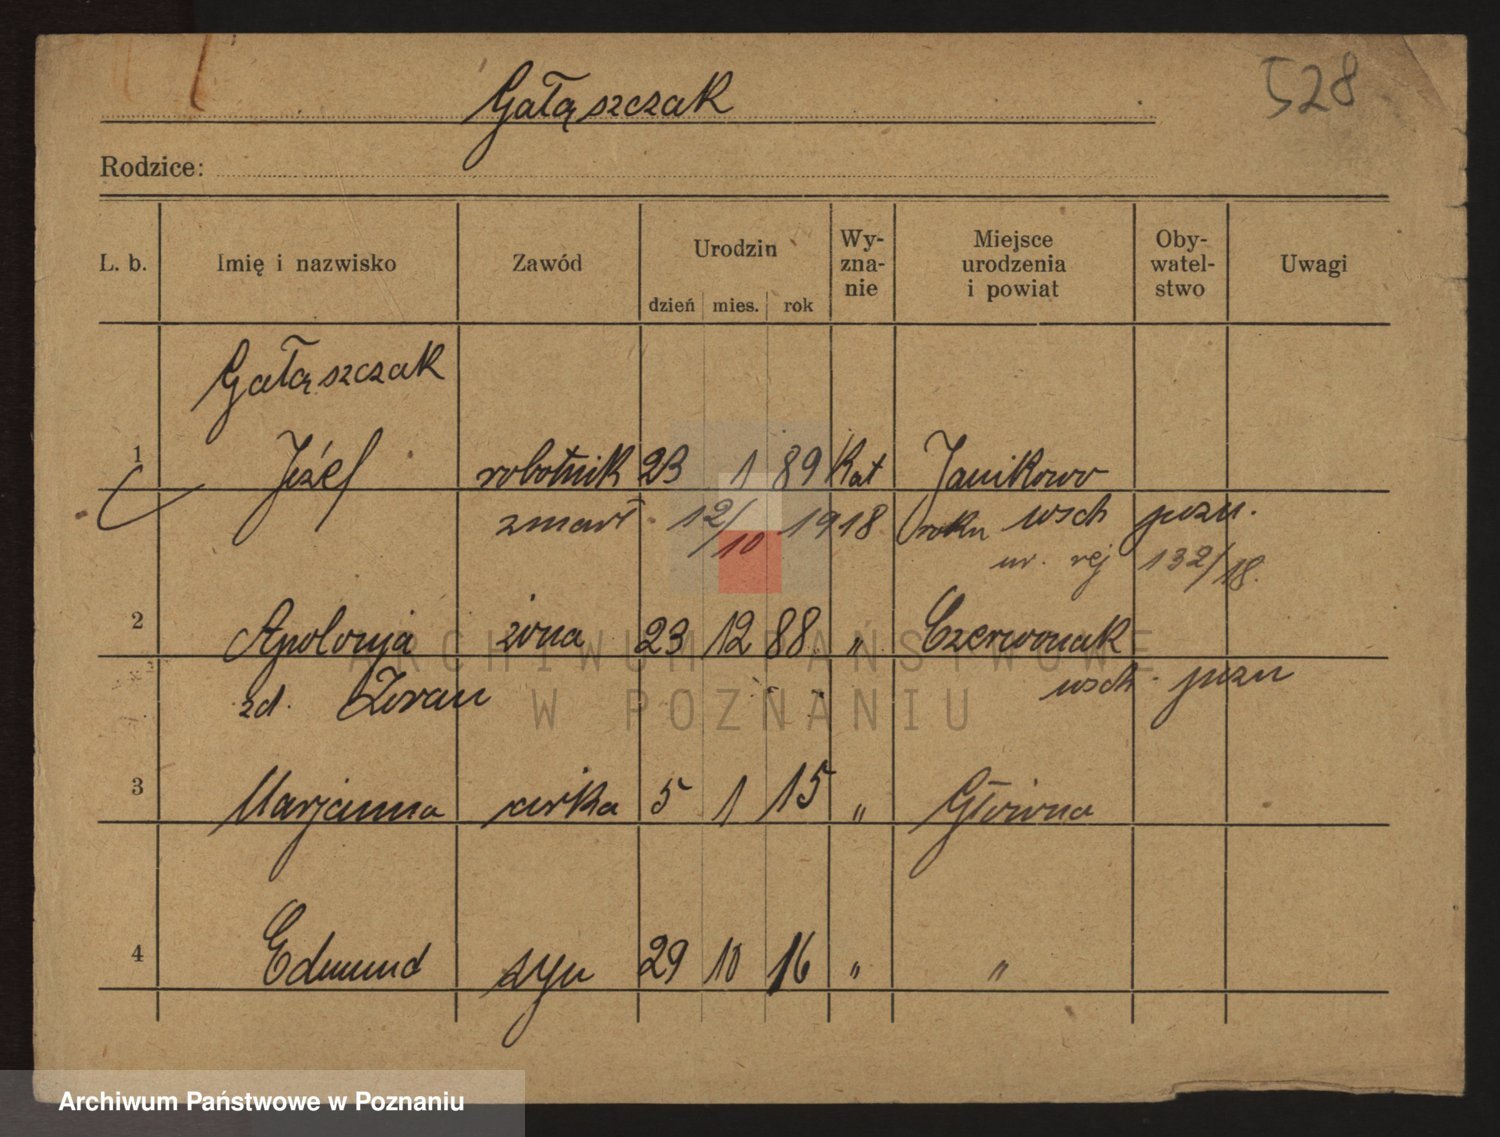 528
Gałąszczak
Rodzice:
L. b. Imię i nazwisko Zawód Urodzin Wy-zna-nie Miejsce urodzenia i powiat Oby-watel-stwo Uwagi
dzień mies. rok
Gałąszczak
1 Józef robotnik 23 1 89 Kat Janikowo
zmarł 12/10 1918 roku wsch pozn.
nr. rej 132/18.
2 Apolonja żona 23 12 88 „ Czerwonak
zd. wsch. pozn
3 Marjanna córka 5 1 15 „ Główna
4 Edmund syn 29 10 16 „ „
ARCHIWUM PAŃSTWOWE
W POZNANIU
Archiwum Państwowe w Poznaniu